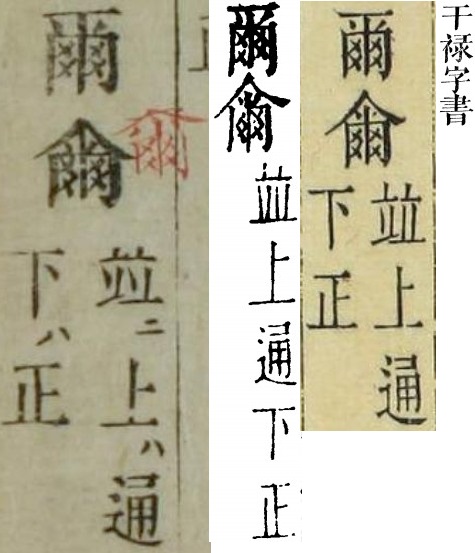 干禄字書
爾
並上通
下正
爾
並上通下正
爾
爾
並ニ上ハ通
下ハ正